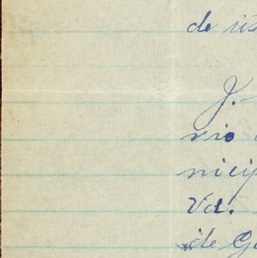 de
J.
rio
nicip
Va.
de G